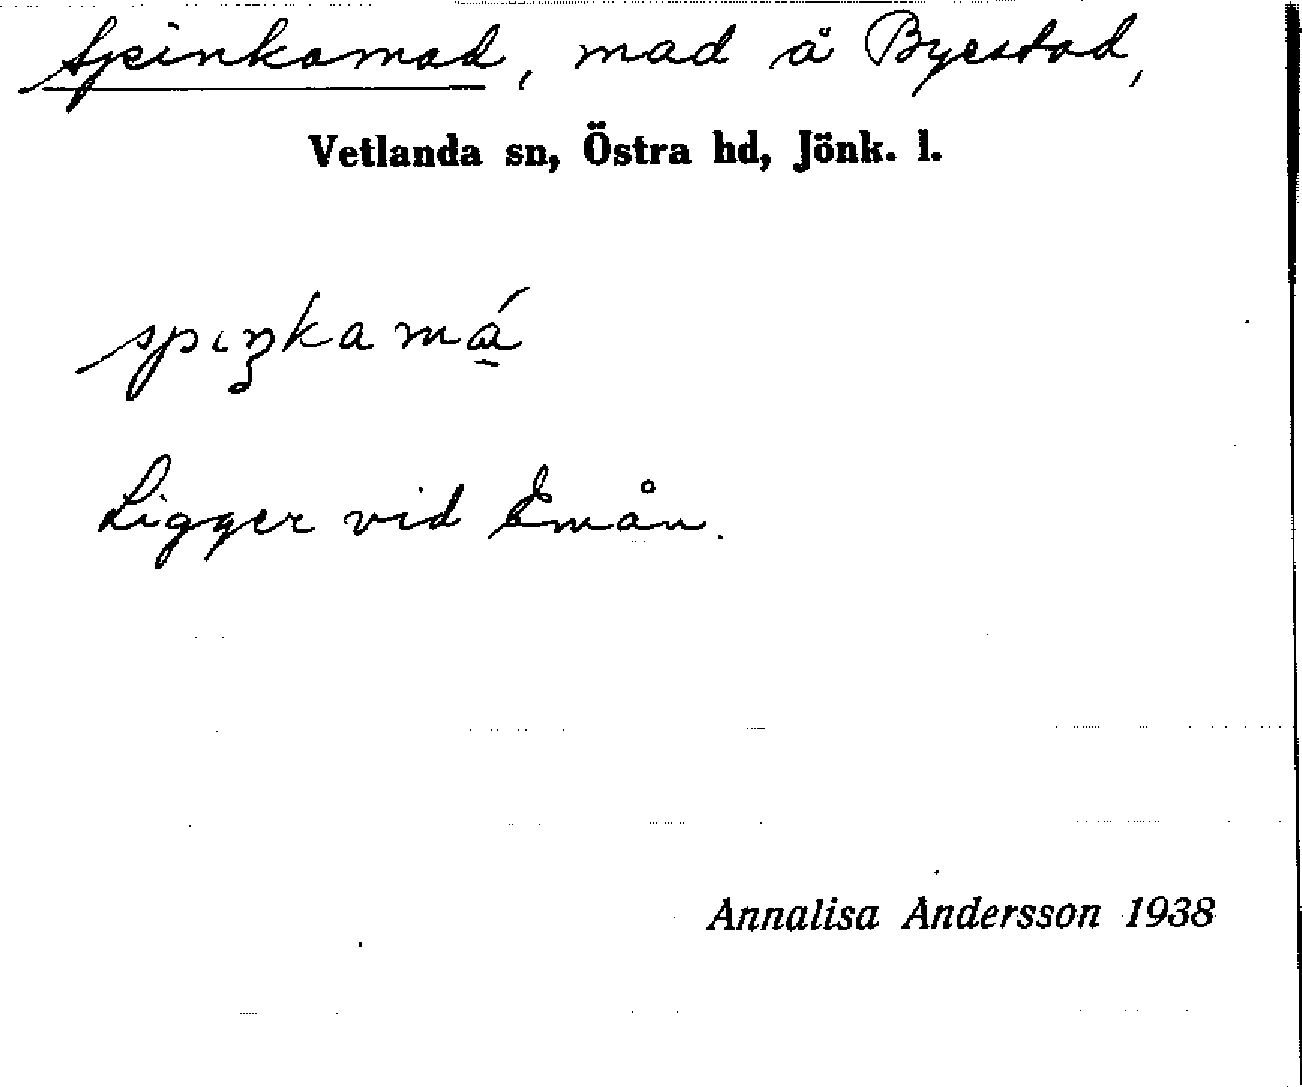 Spinkamad, mad å Byestad,
Vetlanda sn, Östra hd, Jönk. l.
spıŋkamá̱
Ligger vid Emån.
Annalisa Andersson 1938